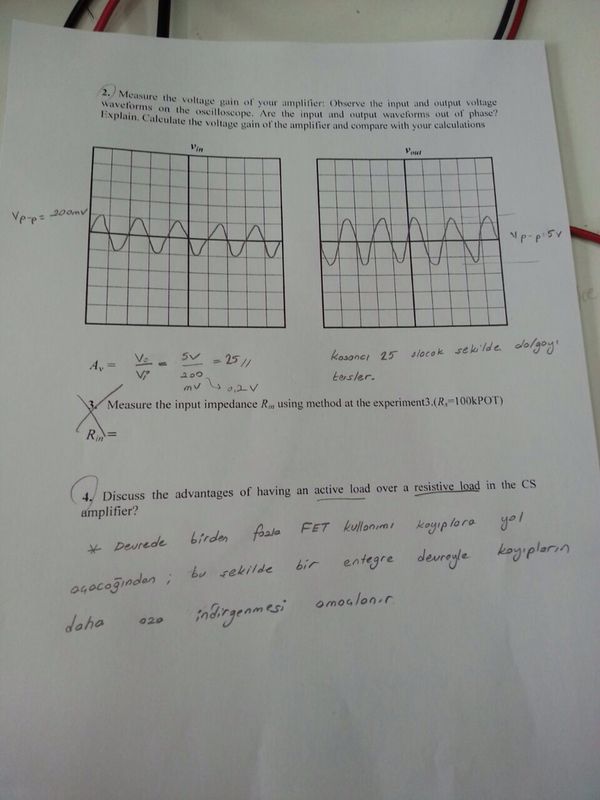 2. Measure the voltage gain of your amplifier: Observe the input and output voltage
waveforms on the oscilloscope. Are the input and output waveforms out of phase?
Explain. Calculate the voltage gain of the amplifier and compare with your calculations
Vin
Vout
Vp-p= 200mV
Vp-p=5V
Av = Vo/Vi = 5V/200 mV = 25 //
0,2 V
kazancı 25 olacak şekilde dalgayı
tersler.
3. Measure the input impedance Rin using method at the experiment3.(Rs=100kPOT)
Rin=
4. Discuss the advantages of having an active load over a resistive load in the CS
amplifier?
* Devrede birden fazla FET kullanımı kayıplara yol
açacağından ; bu şekilde bir entegre devreyle kayıpların
daha aza indirgenmesi amaçlanır